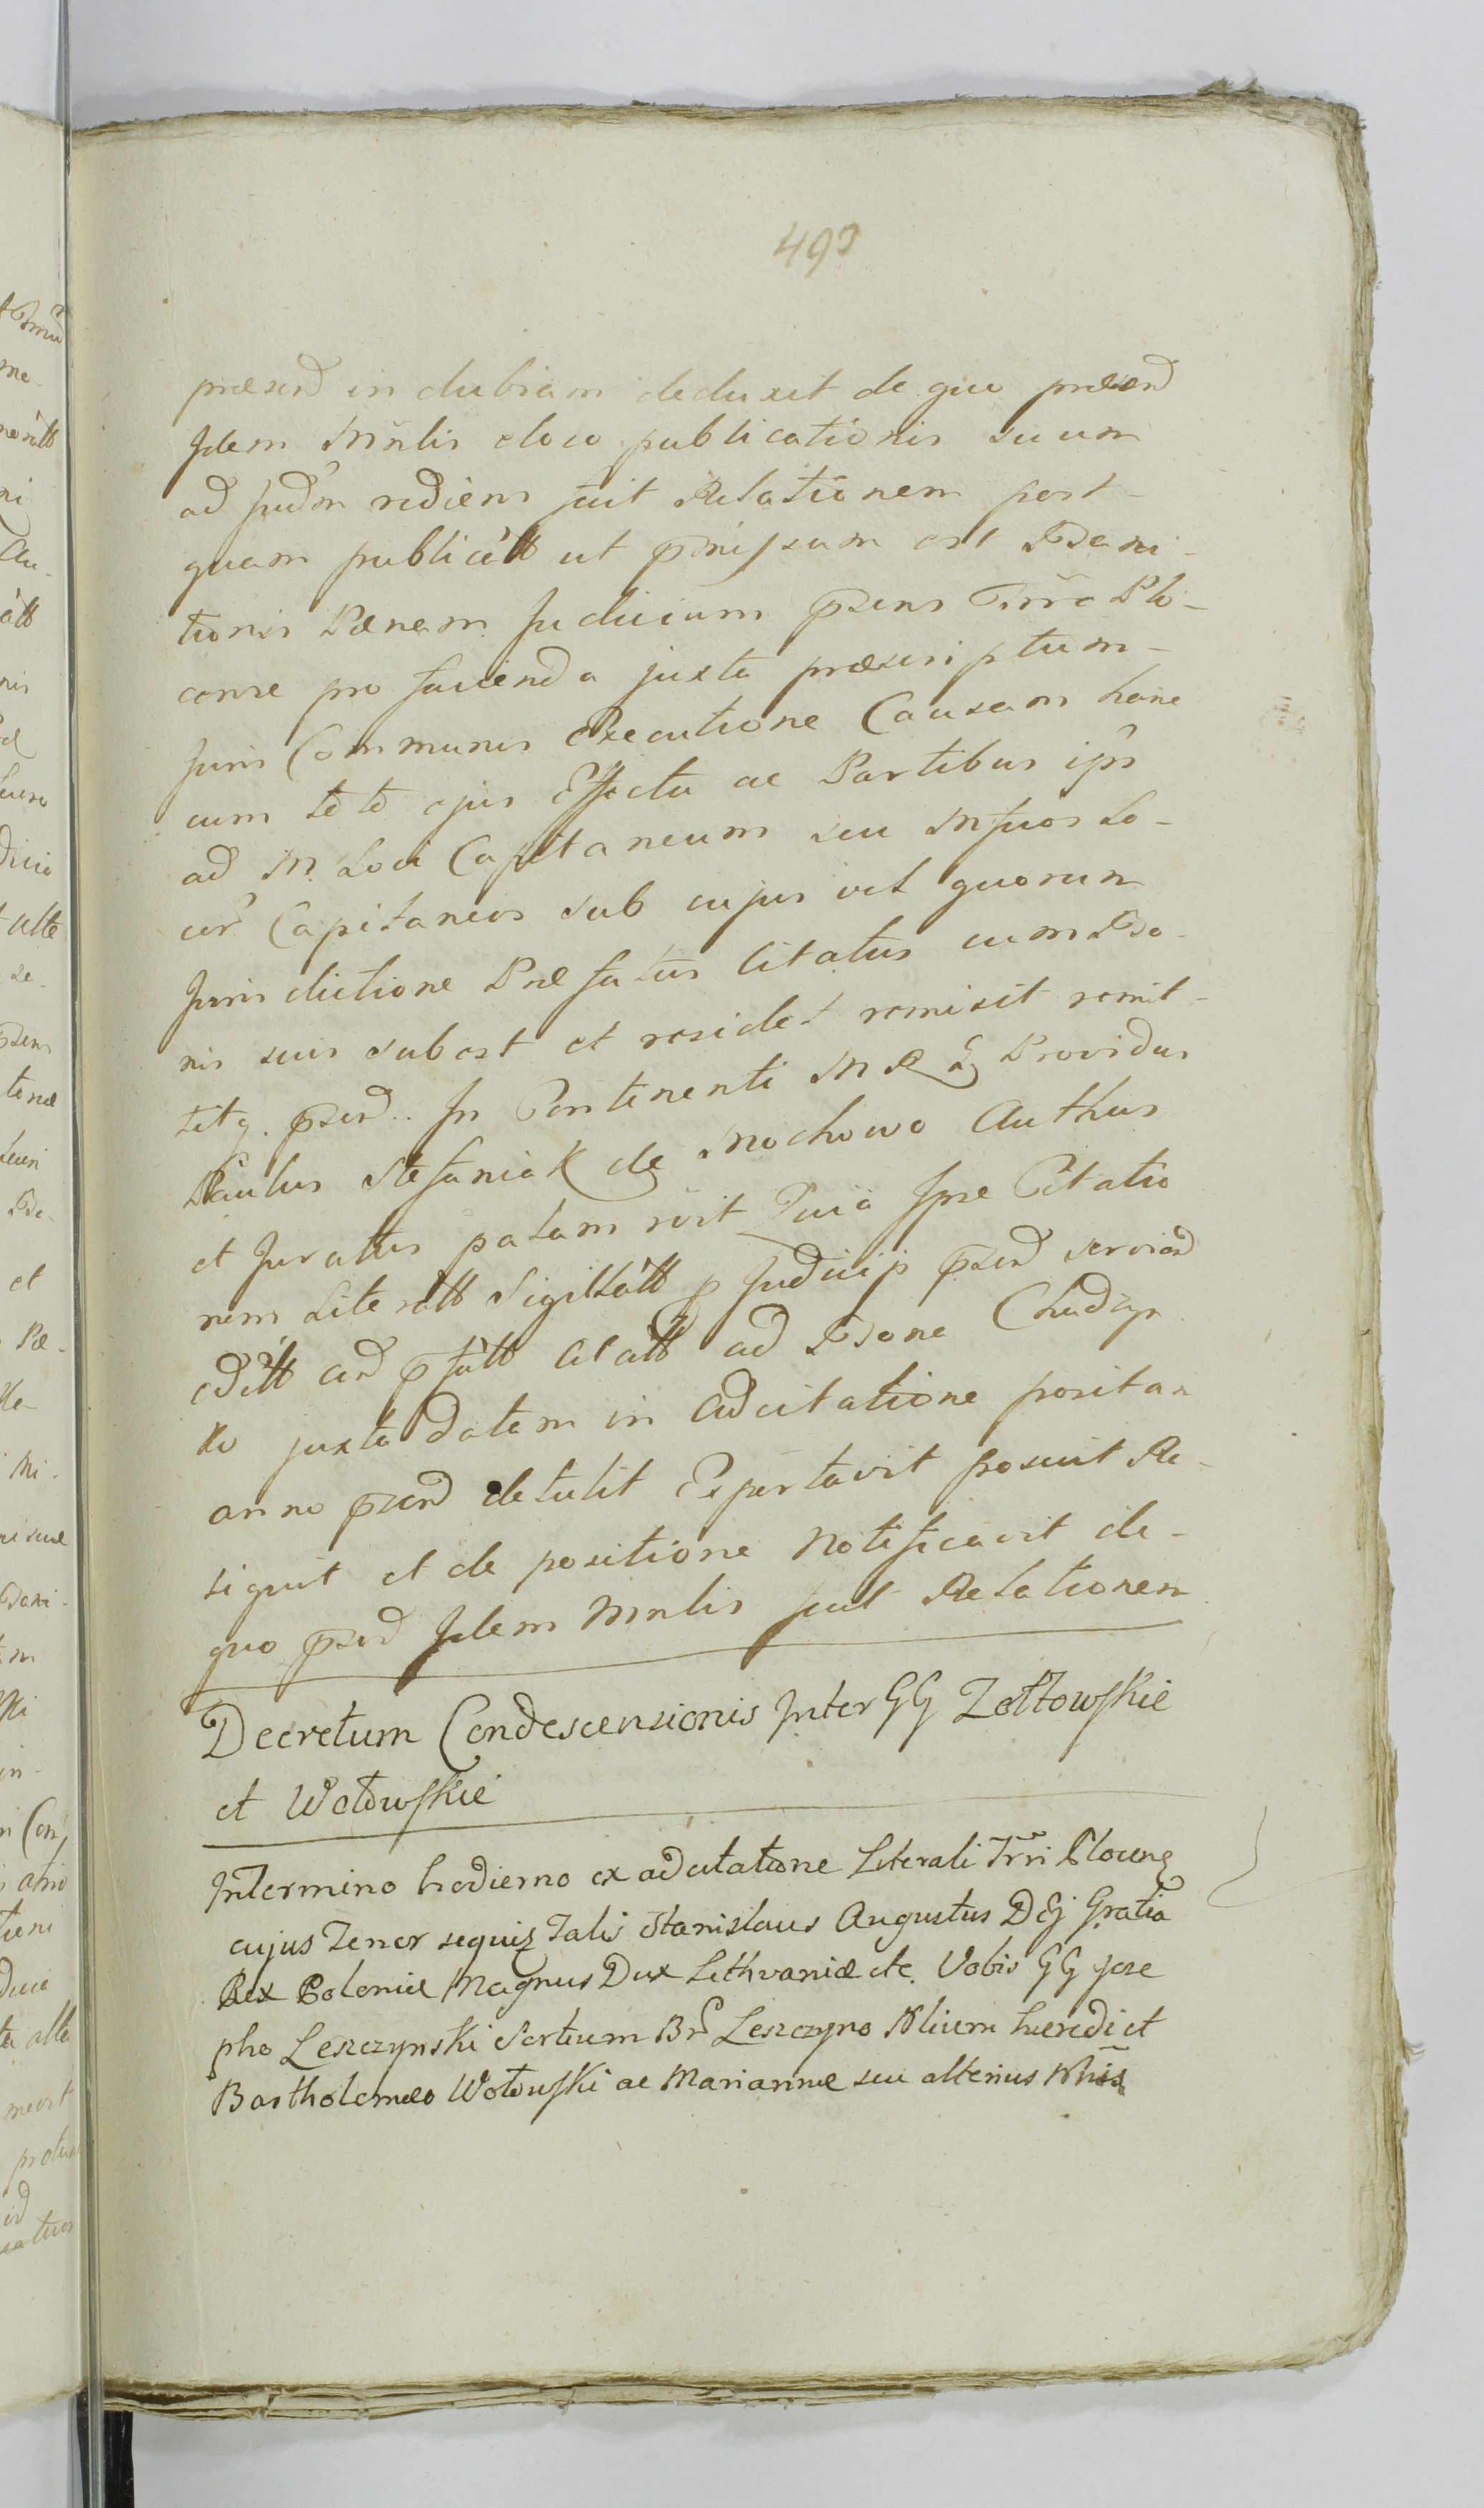 493
præsend in dubiam deduxit de quo præsend
Idem Mnlis eloco publicationis suum
ad Judm rediens fuit Relationem post-
quam publicatt ut pmissum est Bani-
tionis Pænam Judicium psens Trrē Plo-
cense pro facienda juxta præscriptum-
Juris Communis Executione Causam hanc
cum toto ejus Effectu ac Partibus ips
ad M. Loci Capitaneum seu Msuos Lo-
cor Capitaneos sub cujus vel quorum
Juris dictione Præfatus Citatus cum Bo-
nis suis subest et residet remisit remit-
titq. psend.. In Continenti MRg Providus
Paulus Stefaniak de Mochowo Authus
et Juratus palam roit Quia Ipse Citatio
nem Literatt Sigillatt p Judicip psend serviend
editt and pfatt Citatt ad Bona Chudzyn
ko juxta datam in Adcitatione positan
anno psend detulit Exportavit posuit Re-
liquit et de positione Notificavit de-
quo psend Idem Mnlis fuit Relationem
Decretum Condescensionis Inter GG Zołtowskie
et Wołowskie
Intermino hodierno ex adcitatione Literali Trri Plocens
cujus Tenor sequiz Talis Stanislaus Augustus DEj Gratia
Rex Poloniæ Magnus Dux Lithvaniæ etc. Vobis GG Jose
pho Leszczynski Sortium Br Leszczyno Alium hæredi et
Bartholomæo Wołowski ac Mariannæ seu alterius Nnis